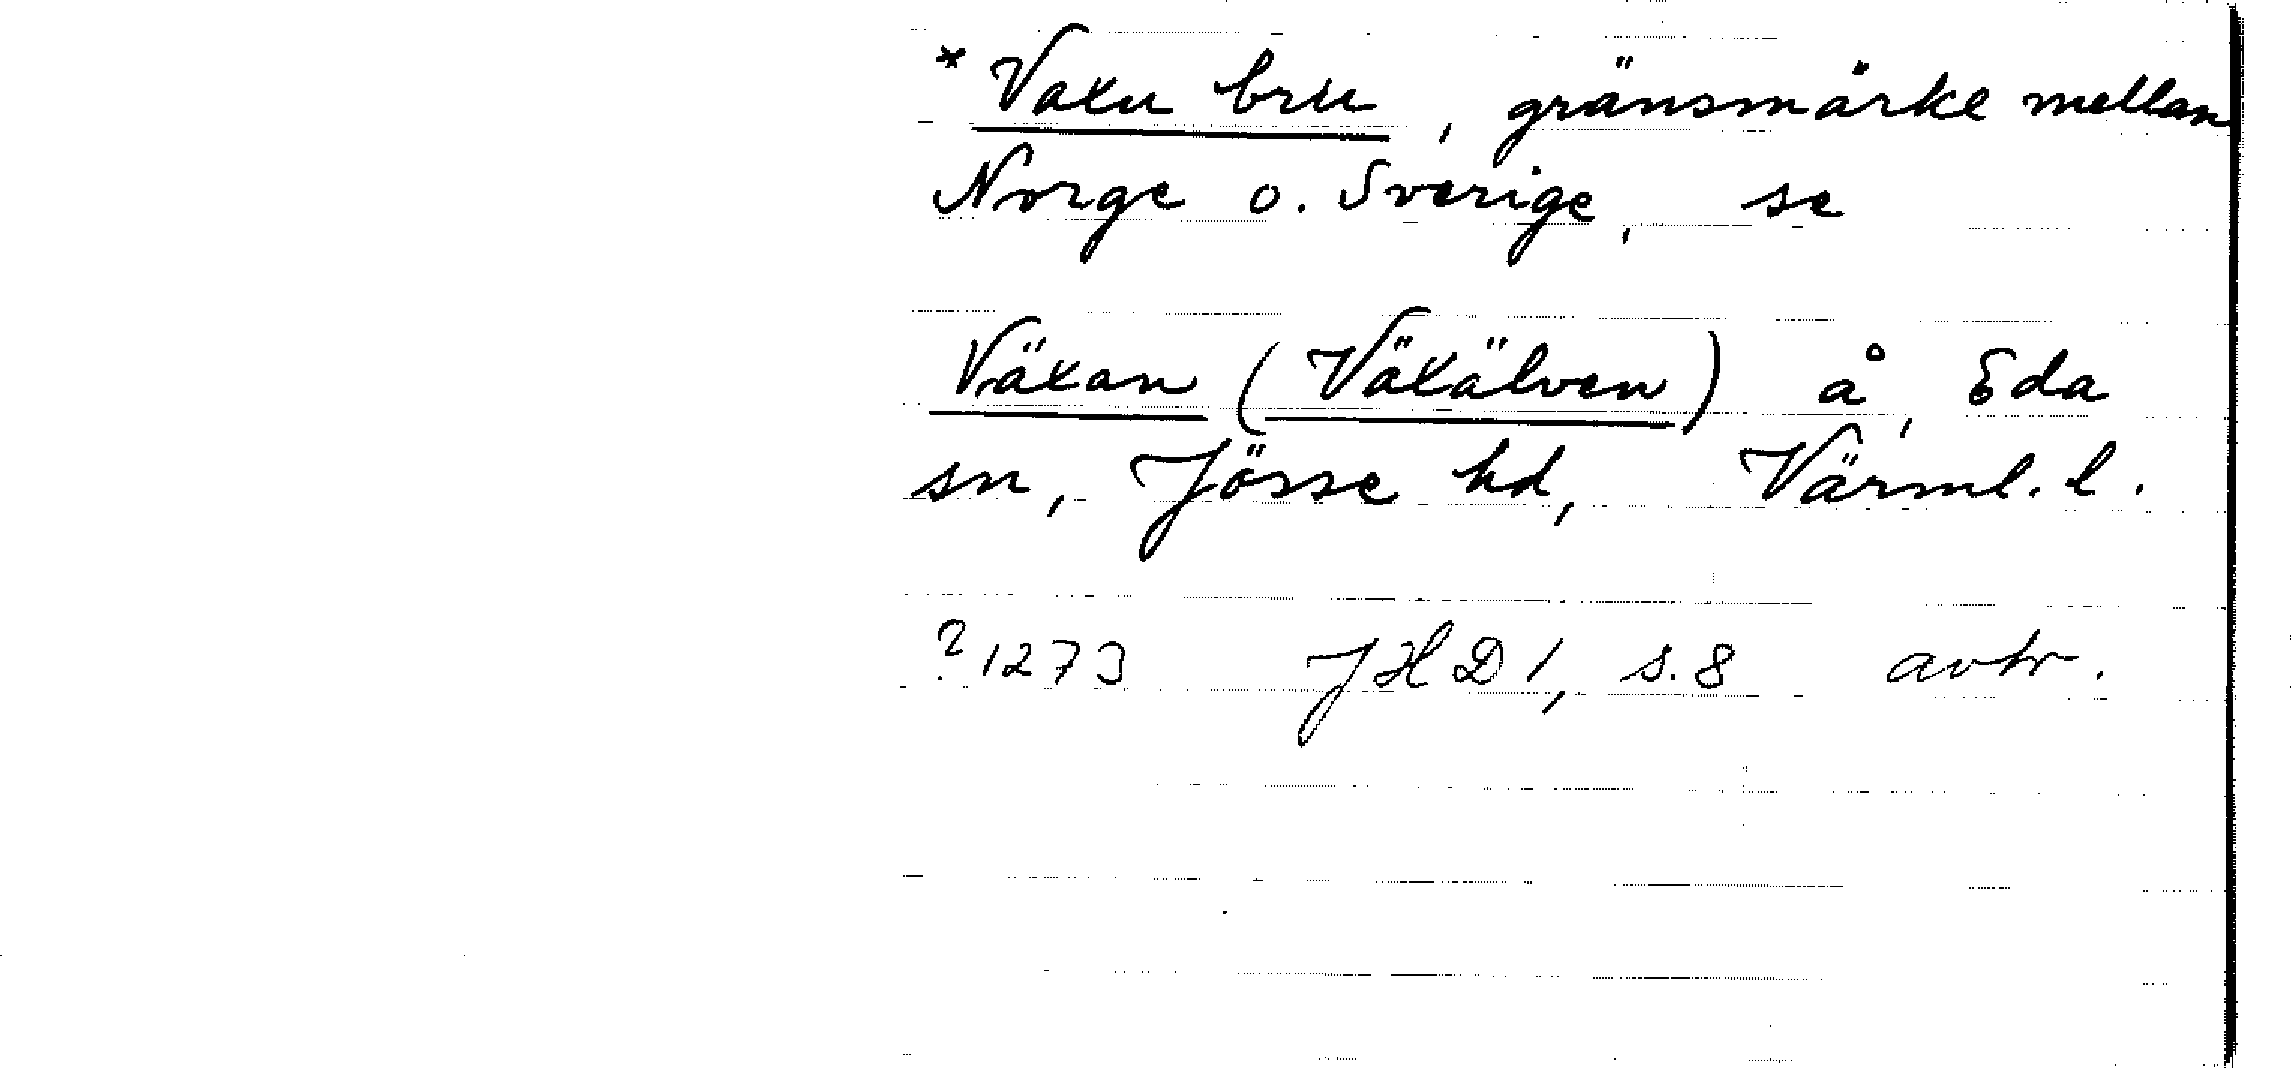 * Vaxu bru, gränsmärke mellan
Norge o. Sverige, se
Växan (Växälven) å, Eda
sn, Jösse hd, Värml. l.
? 1273 JHD 1, s. 8 avtr.